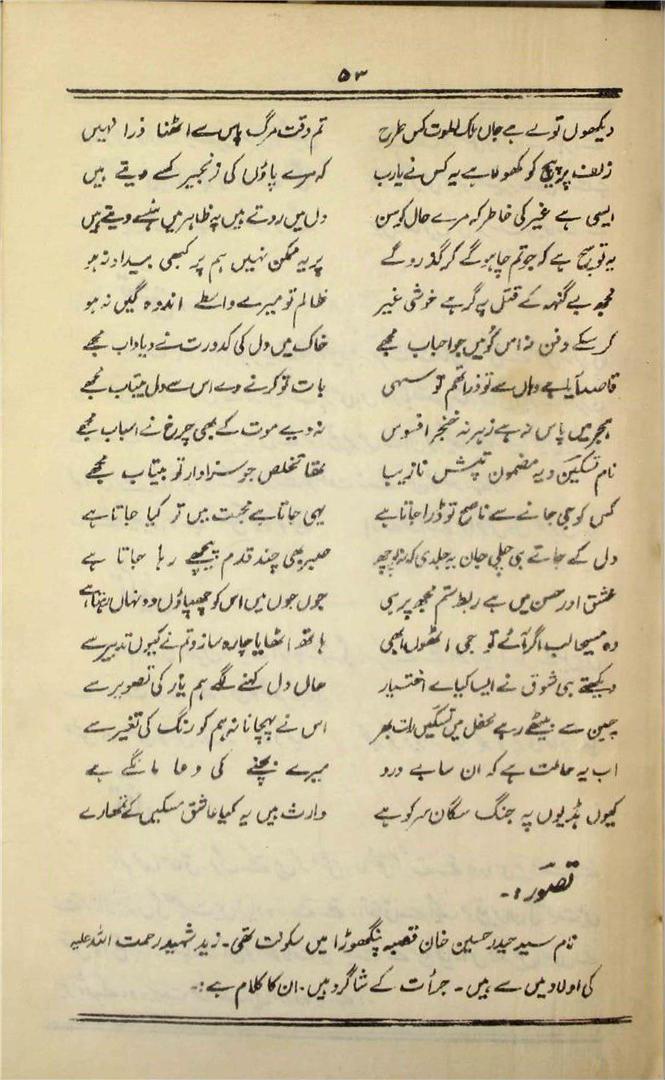 ۵۳
دیکھوں تو لے ہے جاں ملک الموت کس طرح تم وقت مرگ پاس سے اٹھنا ذرا نہیں
زلف پر پیچ کو کھولا ہے یہ کس نے یارب کہ مرے پاؤں کی زنجیر کسے دیتے ہیں
ایسی ہے غیر کی خاطر کہ مرے حال کو سن دل میں روتے ہیں پہ ظاہر میں ہنسے دیتے ہیں
یہ تو سچ ہے کہ جو تم چاہو گے کر گذرو گے پر یہ ممکن نہیں ہم پر کبھی بیداد نہ ہو
مجھ بے گنہہ کے قتل پہ گر ہے خوشی غیر ظالم تو میرے واسطے اندوہ گیں نہ ہو
کر سکے دفن نہ اس کو میں جو احباب مجھے خاک میں دل کی کدورت نے دیا داب مجھے
قاصد آیا ہے وہاں سے تو ذرا تھم تو سہی بات تو کرنے دے اس سے دل بیتاب مجھے
ہجر میں پاس نہ ہے زہر نہ خنجر افسوس نہ دیے موت کے بھی چرخ نے اسباب مجھے
نام تسکین و یہ مضمون تپش نازیبا تھا تخلص جو سزاوار تو بیتاب مجھے
کس کو جی جانے سے ناصح تو ڈرا جاتا ہے یہی جاتا ہے محبت میں تر کیا جاتا ہے
دل کے جاتے ہی چلی جان یہ جلدی کہ نہ پوچھ صبر بھی چند قدم پیچھے رہا جاتا ہے
عشق اور حسن میں ہے ربط ستم مجھ پر ہی جوں جوں میں اس کو چھپاؤں وہ نہاں رہتا ہے
وہ مسیحا لب اگر آئے تو جی اٹھوں ابھی ہاتھ اٹھایا چارہ سازو تم نے کیوں تدبیر سے
دیکھتے ہی شوق نے ایسا کیا بے اختیار حال دل کہنے لگے ہم یار کی تصویر سے
چین سے بیٹھے رہے محفل میں تسکین رات بھر اس نے پہچانا نہ ہم کو رنگ کی تغیر سے
اب یہ حالت ہے کہ ان سا بے درد میرے بچنے کی دعا مانگے ہے
کیوں ہڈیوں پہ جنگ سگان سر کو ہے وارث ہیں یہ کیا عاشق مسکیں کے تمھارے
تصور :-
نام سید حیدر حسین خان قصبہ پنگھوڑا میں سکونت تھی۔ زید شہید رحمت اللہ علیہ
کی اولاد میں سے ہیں۔ جرأت کے شاگرد ہیں. ان کا کلام ہے :-